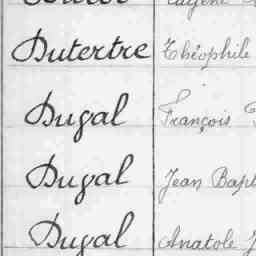 Eugène
Dutertre Théophile
Dugal François
Dugal Jean Bapt
Dugal Anatole J